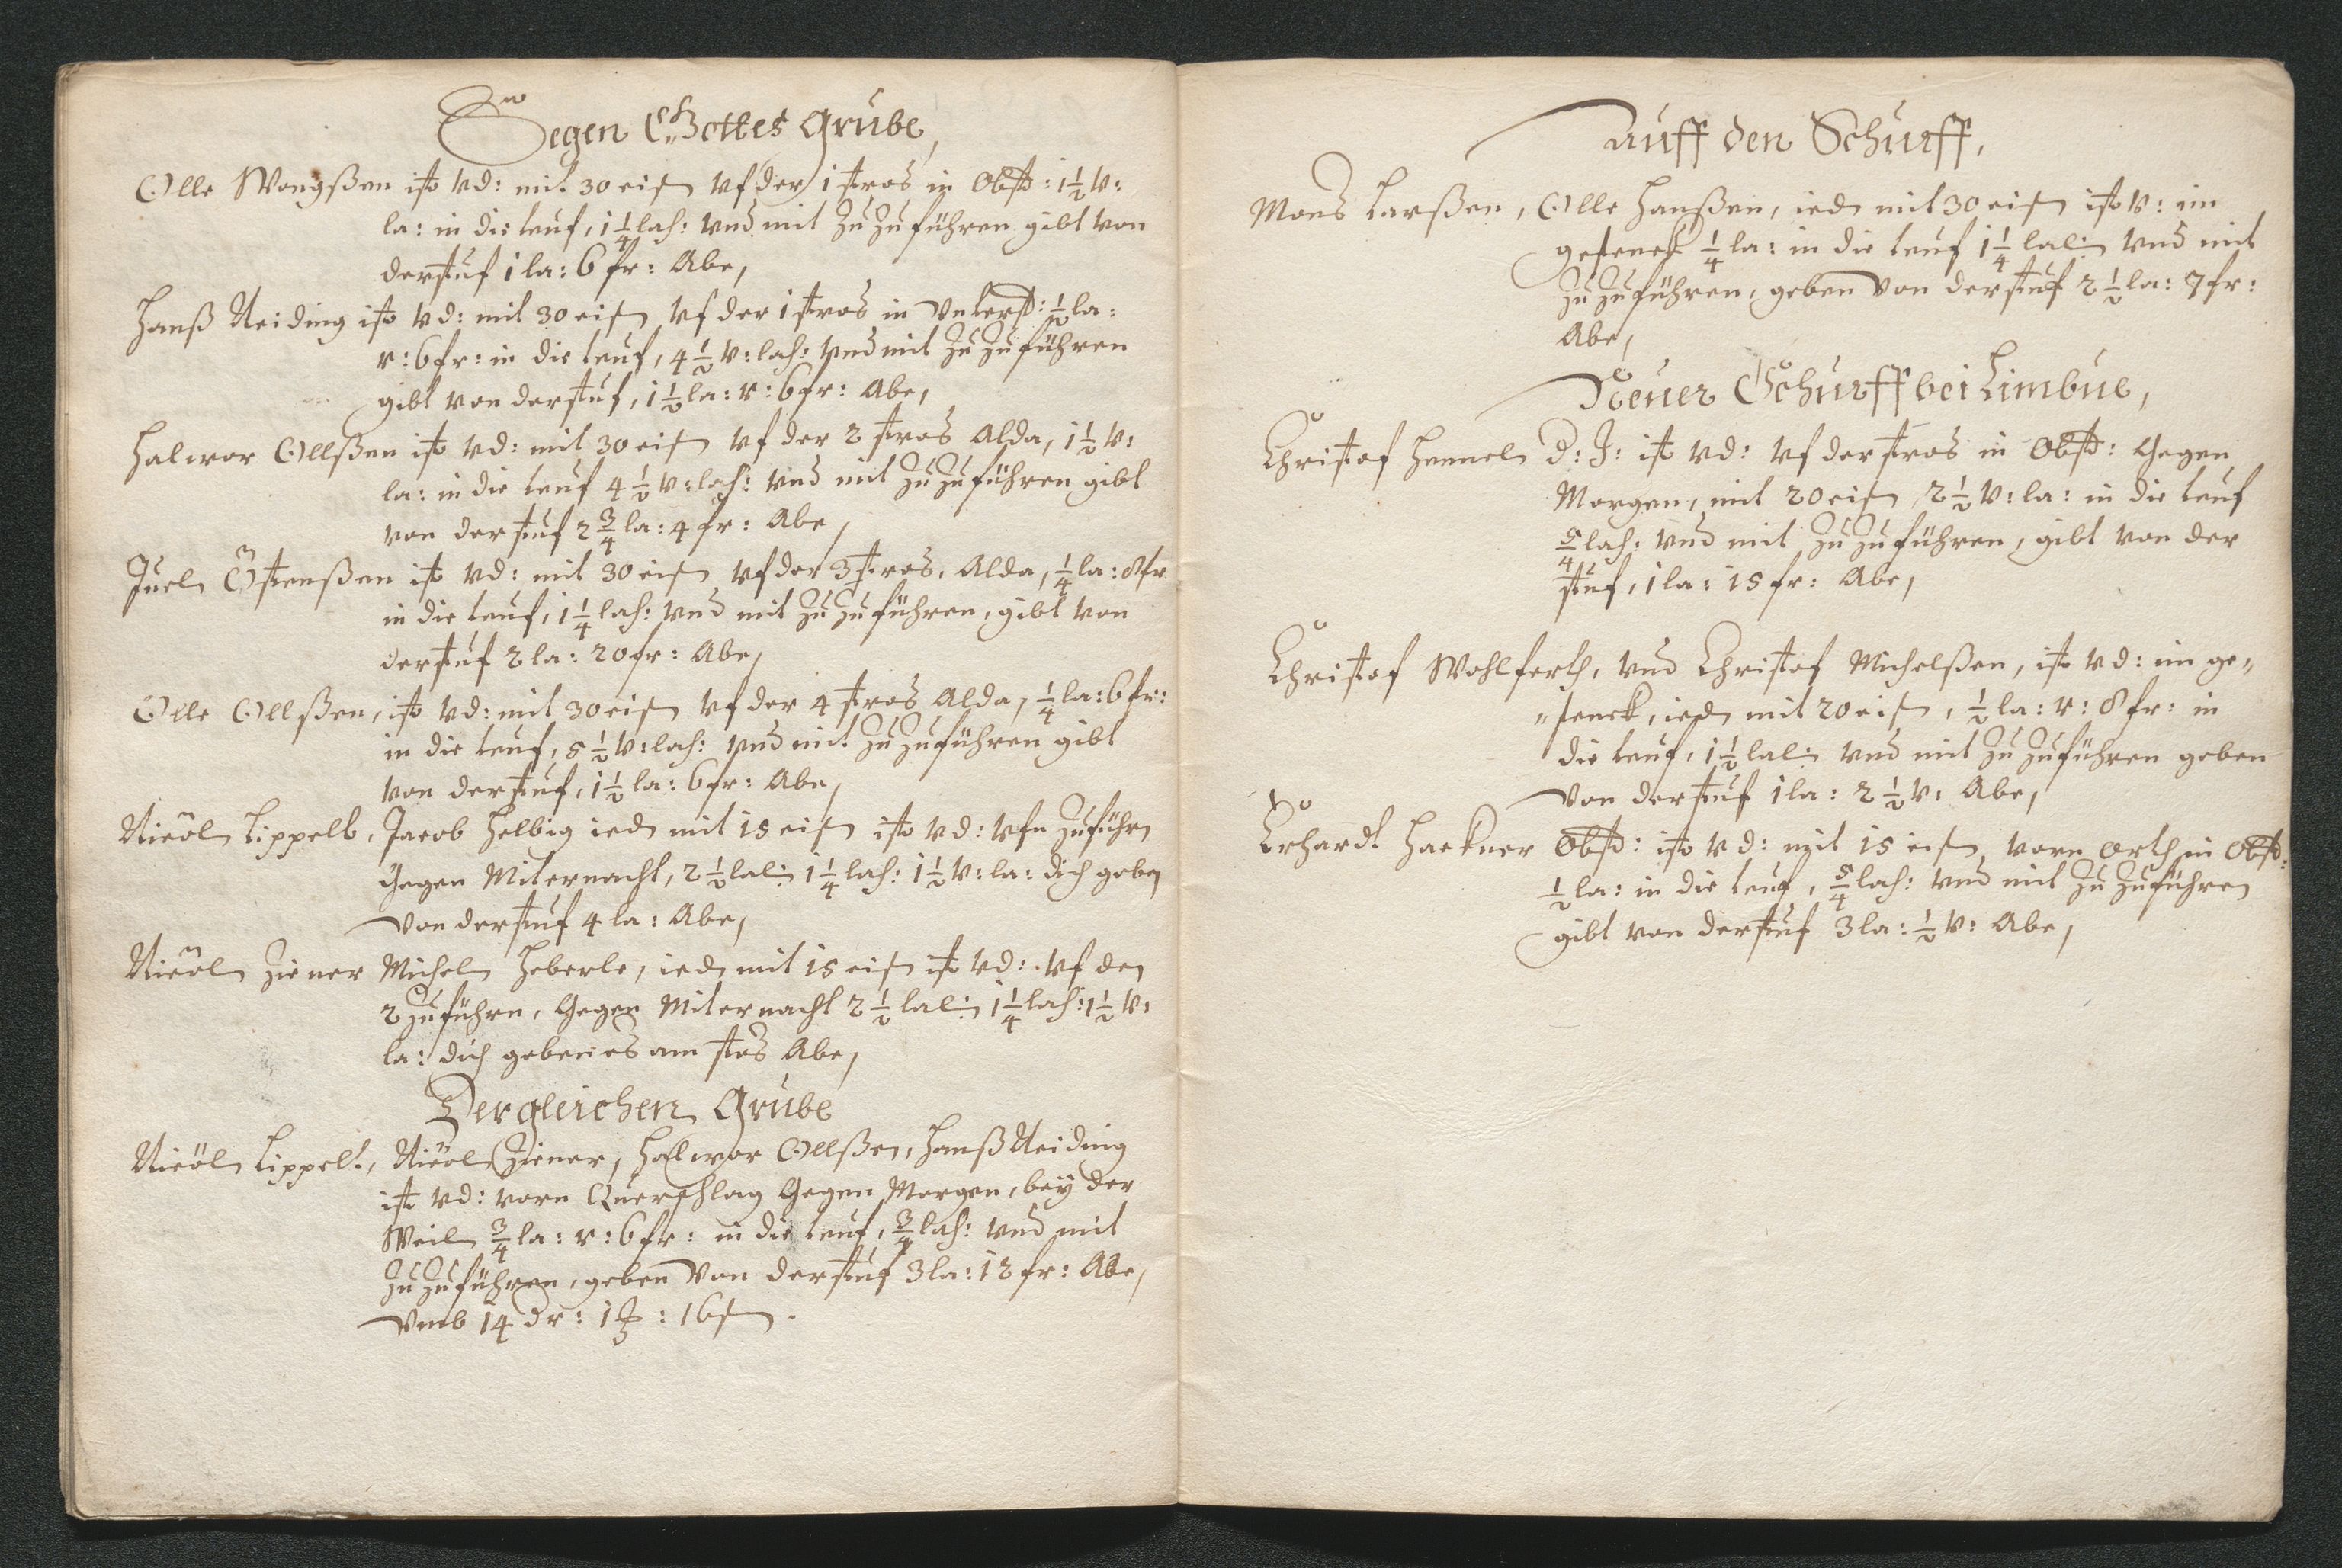 Segen Gottes Grube,
Olle Mongßen ist vd: mit 30 eisen vf der 1 stros in Obst: 1½ v:
la: in die teuf, 1¼ lach: vnd mit Zu Zuführen gibt von
der stuf 1 la: 6 fr: Abe,
Hanß Neiding ist vd: mit 30 eisen vf der 1 stros in Vnterst: ½ la:
v: 6 fr: in die teuf, 4½ v: lach: vnd mit Zu Zuführen
gibt von der stuf, 1½ la: v: 6 fr: Abe,
Halwor Ollßen ist vd: mit 30 eisen vf der 2 stros Alda, 1½ v:
la: in die teuf 4½ v: lach: vnd mit Zu Zuführen gibt
von der stuf 2¾ la: 4 fr: Abe,
Juel Östenßen ist vd: mit 30 eisen vf der 3 stros, Alda, ¼ la: 8 fr
in die teuf, 1¼ lach: vnd mit Zu Zuführen, gibt von
der stuf 2 la: 20 fr: Abe,
Olle Ollßen, ist vd: mit 30 eisen vf der 4 stros Alda, ¼ la: 6 fr:
in die teuf, 5½ v: lach: vnd mit Zu Zuführen gibt
von der stuf, 1½ la: 6 fr: Abe,
Nicol Lippelt, Jacob Helbig ieder mit 15 eisen ist vd: vfn Zuführn
Gegen Miternacht, 2½ lal: 1¼ lach: 1½ v: la: dich geben
Von der stuf 4 la: Abe,
Nicol Ziener Michel Heberle, ieder mit 15 eisen ist vd: vf den
2 Zuführn, Gegen Miternacht 2½ lal: 1¼ lach: 1½ v:
la: dich geben es am stos Abe,
Dergleichen Grube
Nicol Lippelt, Nicol Ziener, Halwor Ollßen, Hanß Neiding
ist vd: vorn Querschlag Gegen Morgen, bey der
Weil ¾ la: v: 6 fr: in die teuf, ¾ lach: vnd mit
Zu Zuführen, geben Von der stuf 3 la: 12 fr: Abe,
Vmb 14 dr: 1 : 16
auff den Schurff,
Mons Larßen, Olle Hanßen, ieder mit 30 eisen ist v: im
gesenck ¼ la: in die teuf 1¼ lal: vnd mit
Zu Zuführen, geben Von der stuf 2½ la: 7 fr:
Abe,
Neuer Schurff bei Limbue,
Christof Hennel d: J: ist vd: vf der stros in Obst: Gegen
Morgen, mit 20 eisen 2½ v: la: in die teuf
5/4 lach: vnd mit Zu Zuführen, gibt von der
stuf, 1 la: 15 fr: Abe,
Christof Wohlferth, vnd Christof Michelßen, ist vd: im ge„
„senck, ieder mit 20 eisen, ½ la: v: 8 fr: in
die teuf, 1½ lal: vnd mit Zu Zuführen geben
Von der stuf 1 la: 2½ v: Abe,
Erhardt Hackner Obst: ist vd: mit 15 eisen vorn orth in Obst:
½ la: in die teuf, 5/4 lach: vnd mit Zu Zuführen
gibt von der stuf 3 la: ½ v: Abe,